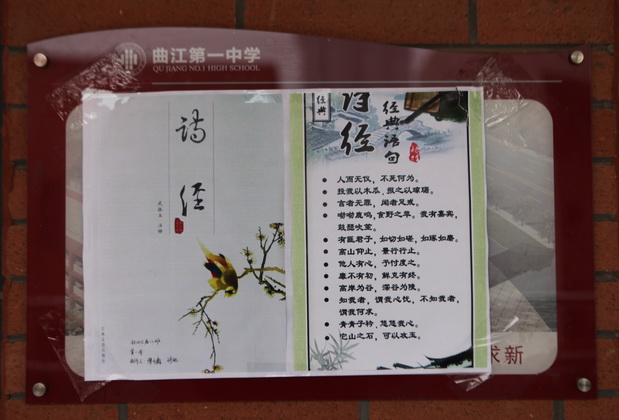 曲江第一中学
QU JIANG NO.1 HIGH SCHOOL
诗经
经典
诗经
经典语句
人而无仪，不死何为。
投我以木瓜，报之以琼琚。
言者无罪，闻者足戒。
呦呦鹿鸣，食野之苹。我有嘉宾，
鼓瑟吹笙。
有匪君子，如切如磋，如琢如磨。
高山仰止，景行行止。
他人有心，予忖度之。
靡不有初，鲜克有终。
高岸为谷，深谷为陵。
知我者，谓我心忧，不知我者，
谓我何求。
青青子衿，悠悠我心。
它山之石，可以攻玉。
求新